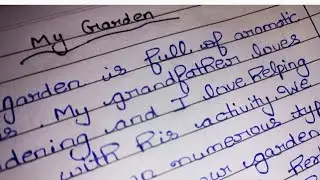 My Garden
garden is full of aromatic
My grandfather loves
dening and I love helping
with his activity we
numerous typ
our garden